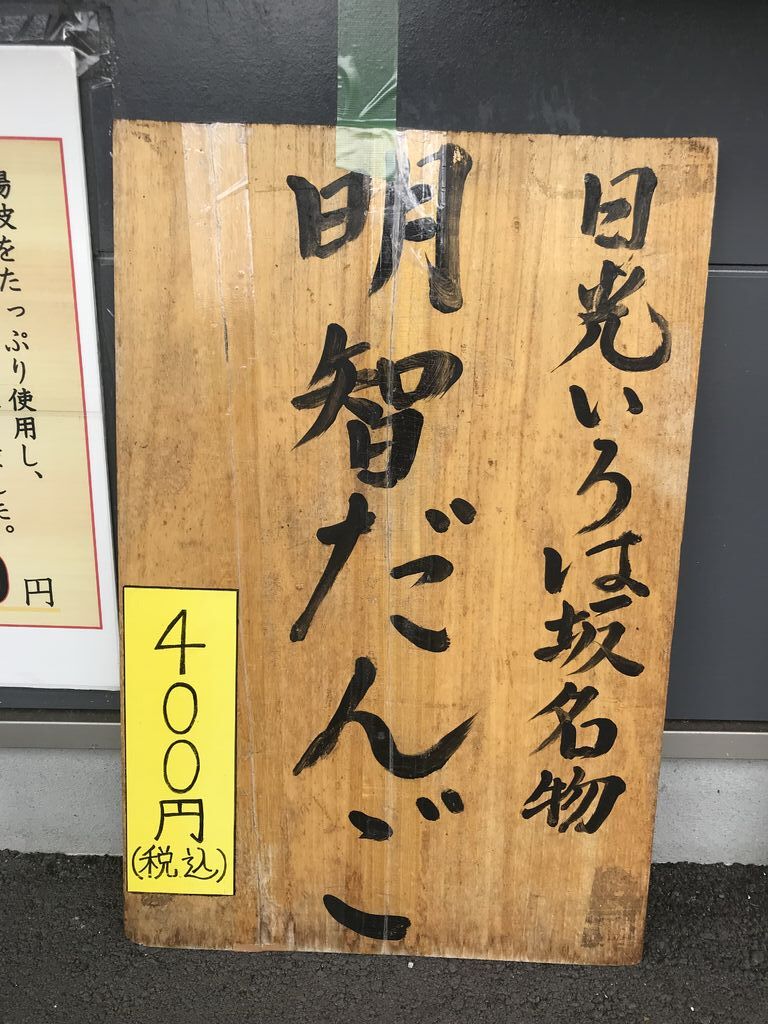 日光いろは坂名物
明智だんご
400円
(税込)
湯波をたっぷり使用し、
した。
円